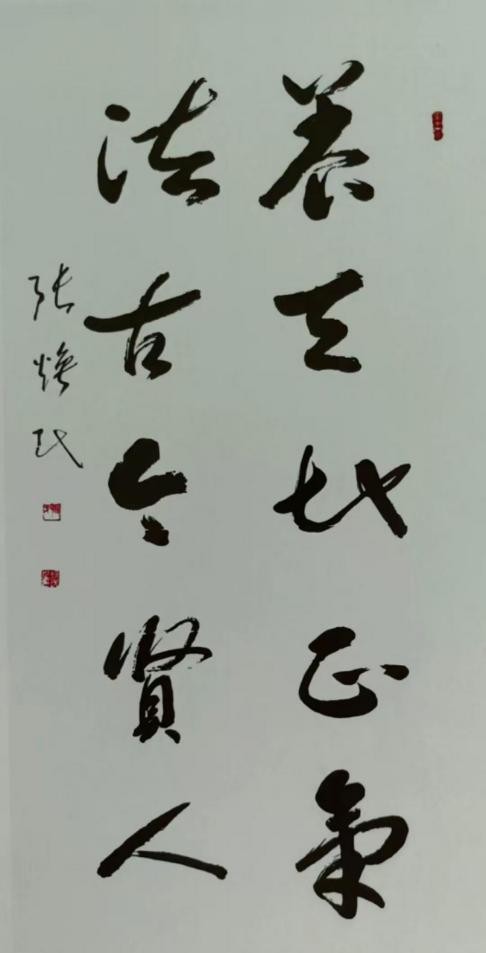 养天地正氣
法古今贤人
张焕民